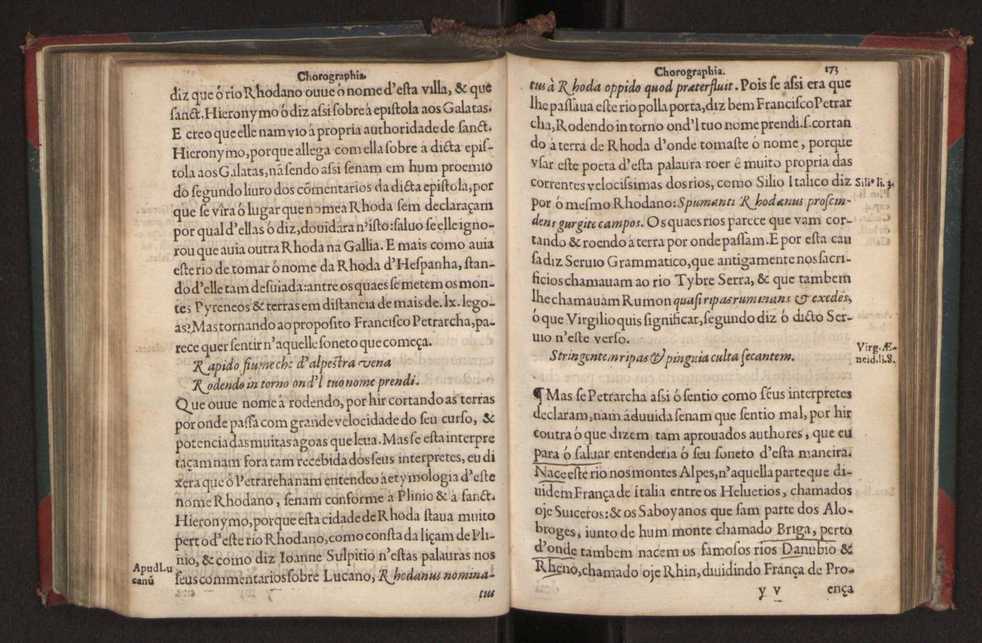 Chorographia.
diz que ó rio Rhodano ouue ó nome d'esta villa, & que
sanct. Hieronymo ó diz assi sobre à epistola aos Galatas.
E creo que elle nam vio à propria authoridade de sanct.
Hieronymo, porque allega com ella sobre à dicta epis-
tola aos Galatas, nã sendo assi senam em hum proemio
do segundo liuro dos cõmentarios da dicta epistola, por
que se vira ó lugar que nomea Rhoda sem declaraçam
por qual d'ellas ó diz, douidara n'isto: saluo se elle igno-
rou que auia outra Rhoda na Gallia. E mais como auia
este rio de tomar ó nome da Rhoda d'Hespanha, stan-
do d'elle tam desuiada: antre os quaes se metem os mon-
tes Pyreneos & terras em distancia de mais de .lx. lego-
as? Mas tornando ao proposito Francisco Petrarcha, pa-
rece quer sentir n'aquelle soneto que começa.
Rapido fiume che d'alpestra vena
Rodendo in torno ond'l tuo nome prendi.
Que ouue nome à rodendo, por hir cortando as terras
por onde passa com grande velocidade do seu curso, &
potencia das muitas agoas que leua. Mas se esta interpre
taçam nam fora tam recebida dos seus interpretes, eu di
xera que ó Petrarcha nam entendeo à etymologia d'este
nome Rhodano, senam conforme à Plinio & à sanct.
Hieronymo, porque esta cidade de Rhoda staua muito
perto d'este rio Rhodano, como consta da liçam de Pli-
nio, & como diz Ioanne Sulpitio n'estas palauras nos
Apud Lu
canũ
seus commentarios sobre Lucano, Rhodanus nomina-
tus
Chorographia.
173
tus à Rhoda oppido quod præterfluit. Pois se assi era que
lhe passaua este rio polla porta, diz bem Francisco Petrar
cha, Rodendo in torno ond'l tuo nome prendi. s. cortan
do à terra de Rhoda d'onde tomaste ó nome, porque
vsar este poeta d'esta palaura roer é muito propria das
correntes velocissimas dos rios, como Silio Italico diz
Siliº li. 3.
por ó mesmo Rhodano: Spumanti Rhodanus proscin-
dens gurgite campos. Os quaes rios parece que vam cor-
tando & roendo à terra por onde passam. E por esta cau
sa diz Seruio Grammatico, que antigamente nos sacri-
ficios chamauam ao rio Tybre Serra, & que tambem
lhe chamauàm Rumon quasi ripas ruminans & exedẽs,
ó que Virgilio quis significar, segundo diz ó dicto Ser-
uio n'este verso.
Virg. Æ-
neid. li. 8.
Stringentem ripas & pinguia culta secantem.
¶ Mas se Petrarcha assi ó sentio como séus interpretes
declaram, nam à duuida senam que sentio mal, por hir
contra ó que dizem tam aprouados authores, que eu
para ó saluar entenderia ó seu soneto d'esta maneira.
Nace este rio nos montes Alpes, n'aquella parte que di-
uidem França de Italia entre os Heluetios, chamados
oje Suiceros: & os Saboyanos que sam parte dos Alo-
broges, iunto de hum monte chamado Briga, perto
d'onde tambem nacem os famosos rios Danubio &
Rheno, chamado oje Rhin, diuidindo França de Pro-
y v
ença